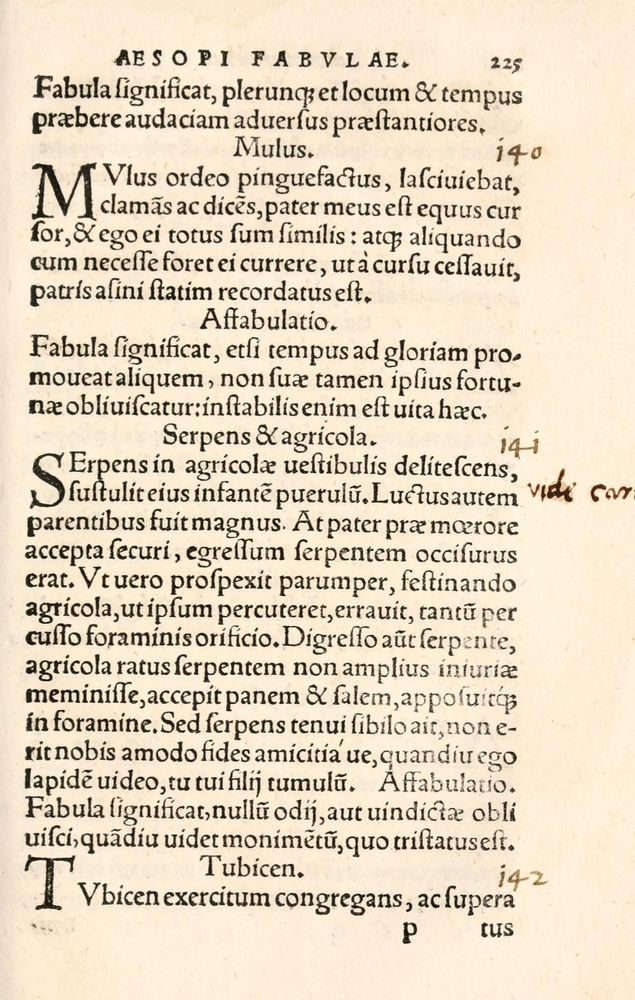 AESOPI FABVLAE. 225
Fabula ſignificat, plerunqꝫ et locum & tempus
præbere audaciam aduerſus præſtantiores.
Mulus. 140
MVlus ordeo pinguefactus, laſciuiebat,
clamãs ac dicẽs, pater meus eſt equus cur
ſor, & ego ei totus ſum ſimilis: atqꝫ aliquando
cum neceſſe foret ei currere, ut à curſu ceſſauit,
patris aſini ſtatim recordatus eſt.
Affabulatio.
Fabula ſignificat, etſi tempus ad gloriam pro-
moueat aliquem, non ſuæ tamen ipſius fortu-
næ obliuiſcatur: inſtabilis enim eſt uita hæc.
Serpens & agricola. 141
SErpens in agricolæ ueſtibulis deliteſcens,
ſuſtulit eius infantẽ puerulũ. Luctus autem vide
parentibus fuit magnus. At pater præ mœrore
accepta ſecuri, egreſſum ſerpentem occiſurus
erat. Vt uero proſpexit parumper, feſtinando
agricola, ut ipſum percuteret, errauit, tantũ per
cuſſo foraminis orificio. Digreſſo aũt ſerpente,
agricola ratus ſerpentem non amplius iniuriæ
meminiſſe, accepit panem & ſalem, appoſuitqꝫ
in foramine. Sed ſerpens tenui ſibilo ait, non e-
rit nobis amodo fides amicitia'ue, quandiu ego
lapidẽ uideo, tu tui filij tumulũ. Affabulatio.
Fabula ſignificat, nullũ odij, aut uindictæ obli
uiſci, quãdiu uidet monimẽtũ, quo triſtatus eſt.
Tubicen. 142
TVbicen exercitum congregans, ac ſupera
p tus